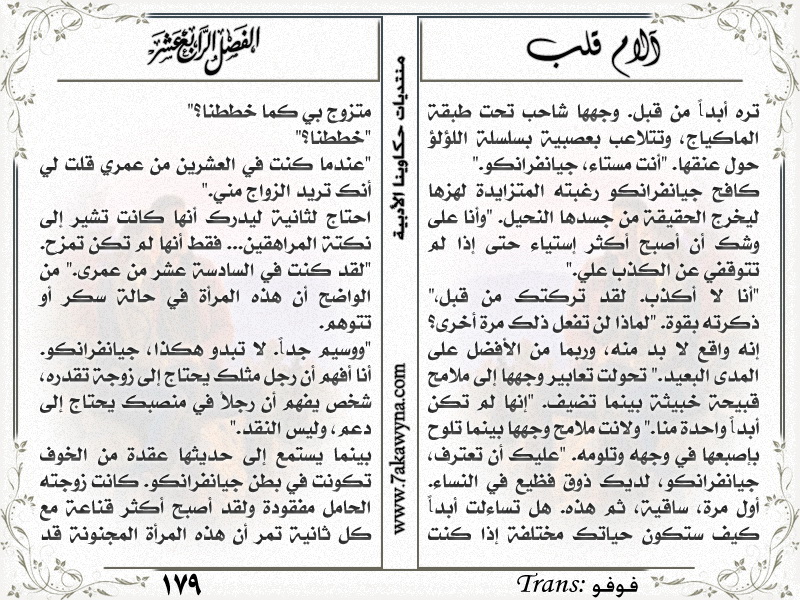 آلام قلب
تره أبداً من قبل. وجهها شاحب تحت طبقة
الماكياج، وتتلاعب بعصبية بسلسلة اللؤلؤ
حول عنقها. "أنت مستاء، جيانفرانكو."
كافح جيانفرانكو رغبته المتزايدة لهزها
ليخرج الحقيقة من جسدها النحيل. "وأنا على
وشك أن أصبح أكثر إستياء حتى إذا لم
تتوقفي عن الكذب علي."
"أنا لا أكذب. لقد تركتك من قبل،"
ذكرته بقوة. "لماذا لن تفعل ذلك مرة أخرى؟
إنه واقع لا بد منه، وربما من الأفضل على
المدى البعيد." تحولت تعابير وجهها إلى ملامح
قبيحة خبيثة بينما تضيف. "إنها لم تكن
أبداً واحدة منا." ولانت ملامح وجهها بينما تلوح
بإصبعها في وجهه وتلومه. "عليك أن تعترف،
جيانفرانكو، لديك ذوق فظيع في النساء.
أول مرة، ساقية، ثم هذه. هل تساءلت أبداً
كيف ستكون حياتك مختلفة إذا كنت
Trans: فوفو
منتديات حكاوينا الأدبية
www.7akawyna.com
الفصل الرابع عشر
متزوج بي كما خططنا؟"
"خططنا؟"
"عندما كنت في العشرين من عمري قلت لي
أنك تريد الزواج مني."
احتاج لثانية ليدرك أنها كانت تشير إلى
نكتة المراهقين... فقط أنها لم تكن تمزح.
"لقد كنت في السادسة عشر من عمري." من
الواضح أن هذه المرأة في حالة سكر أو
تتوهم.
"ووسيم جداً. لا تبدو هكذا، جيانفرانكو.
أنا أفهم أن رجل مثلك يحتاج إلى زوجة تقدره،
شخص يفهم أن رجلاً في منصبك يحتاج إلى
دعم، وليس النقد."
بينما يستمع إلى حديثها عقدة من الخوف
تكونت في بطن جيانفرانكو. كانت زوجته
الحامل مفقودة ولقد أصبح أكثر قناعة مع
كل ثانية تمر أن هذه المرأة المجنونة قد
١٧٩